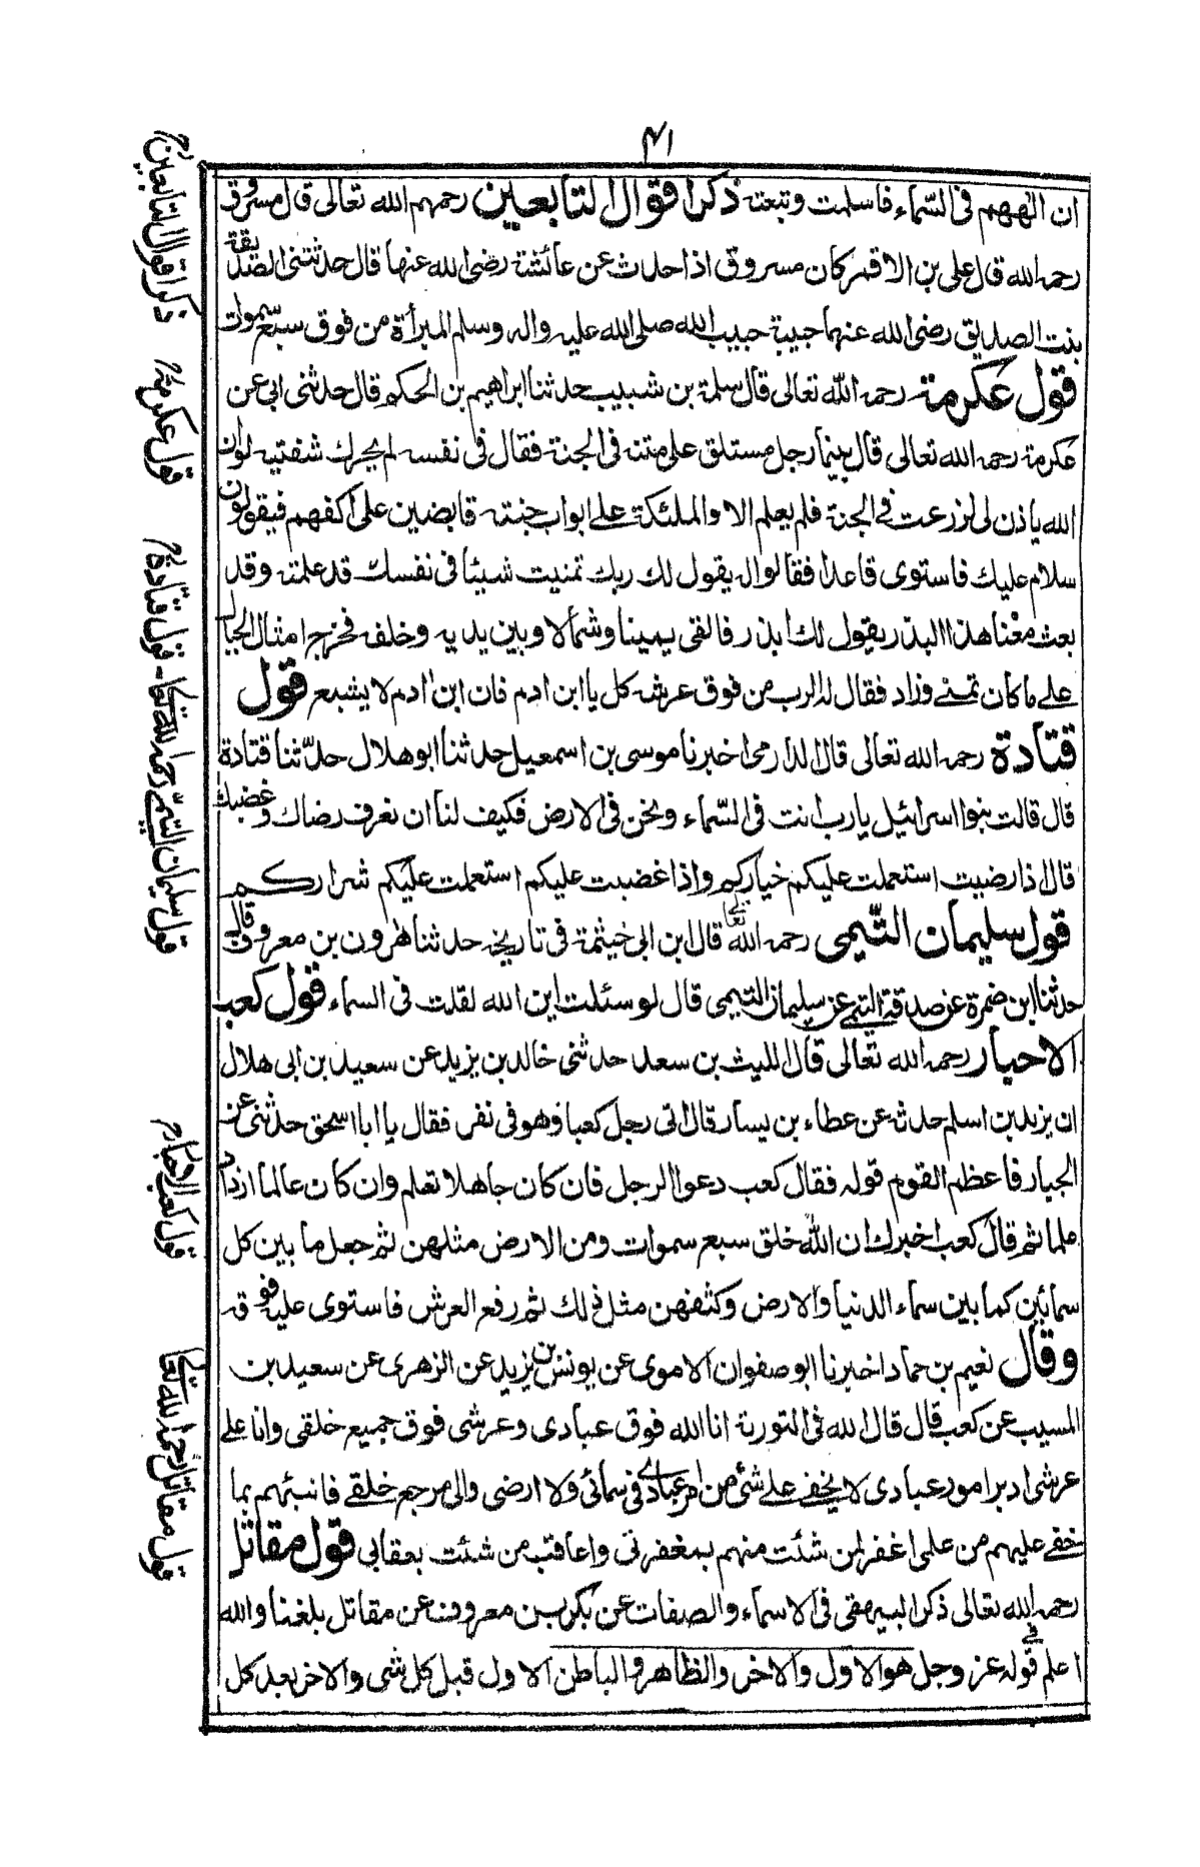 ٤١
ان الٰههم فی السّماء فاسلمت وتبعته ذکر اقوال التابعین رحمهم الله تعالی قال مسروق
رحمه الله قال علی بن الاقمر کان مسروق اذا حدث عن عائشة رضی الله عنها قال حدثتنی الصدیقة
بنت الصدیق رضی الله عنهما حبیبة حبیب الله صلی الله علیه واله وسلم المبرأة من فوق سبع سموات
قول عکرمة رحمه الله تعالی قال سلمة بن شبیب حدثنا ابراهیم بن الحکم قال حدثنی ابی عن
عکرمة رحمه الله تعالی قال بینما رجل مستلق علی متنه فی الجنة فقال فی نفسه لم یحرك شفتیه لو ان
الله یاذن لی لزرعت فی الجنة فلم یعلم الا والملئکة علی ابواب جنته قابضین علی اکفهم فیقولون
سلام علیك فاستوی قاعدا فقالوا له یقول لك ربك تمنیت شیئا فی نفسك قد علمته وقد
بعث معنا هذا البذر یقول لك ابذر فالقی یمینا وشمالا وبین یدیه وخلفه فخرج امثال الجبال
علی ما کان تمنی وزاد فقال له الرب من فوق عرشه کل یا ابن ادم فان ابن ادم لا یشبع قول
قتادة رحمه الله تعالی قال الدارمی اخبرنا موسی بن اسمعیل حدثنا ابو هلال حدّثنا قتادة
قال قالت بنوا اسرائیل یارب انت فی السّماء ونحن فی الارض فکیف لنا ان نعرف رضاك وغضبك
قال اذا رضیت استعملت علیکم خیارکم واذا غضبت علیکم استعملت علیکم شرارکم
قول سلیمان التّیمی رحمه الله تعالی قال ابن ابی خیثمة فی تاریخه حدثنا هٰرون بن معروف قال
حدثنا ابن ضمرة عن صدقة التیمی عن سلیمان التیمی قال لو سئلت این الله لقلت فی السماء قول کعب
الاحبار رحمه الله تعالی قال اللیث بن سعد حدثنی خالد بن یزید عن سعید بن ابی هلال
ان یزید بن اسلم حدثه عن عطاء بن یسار قال اتی رجل کعبا وهو فی نفر فقال یا ابا اسحق حدثنی عن
الجبار فاعظم القوم قوله فقال کعب دعوا الرجل فان کان جاهلا تعلم وان کان عالما ازداد
علما ثم قال کعب اخبرك ان الله خلق سبع سموات ومن الارض مثلهن ثم جعل ما بین کل
سمائین کما بین سماء الدنیا والارض وکثفهن مثل ذلك ثم رفع العرش فاستوی علیه فوقه
وقال نعیم بن حماد اخبرنا ابو صفوان الاموی عن یونس بن یزید عن الزهری عن سعید بن
المسیب عن کعب قال قال الله فی التوریة انا الله فوق عبادی وعرشی فوق جمیع خلقی وانا علی
عرشی ادبر امور عبادی لا یخفی علی شئ من امر عبادی فی سمائی ولا ارضی والی مرجع خلقی فانبئهم بما
خفی علیهم من علمی اغفر لمن شئت منهم بمغفرتی واعاقب من شئت بعقابی قول مقاتل
رحمه الله تعالی ذکر البیهقی فی الاسماء والصفات عن بکر بن معروف عن مقاتل بلغنا والله
اعلم فی قوله عز وجل هو الاول والاخر والظاهر والباطن الاول قبل کل شی والاخر بعد کل
ذکر اقوال التابعین رح
قول عکرمة رح
قول قتادة رح
قول سلیمان التیمی رحمه الله تعالی
قول کعب الاحبار رح
قول مقاتل رحمه الله تعالی